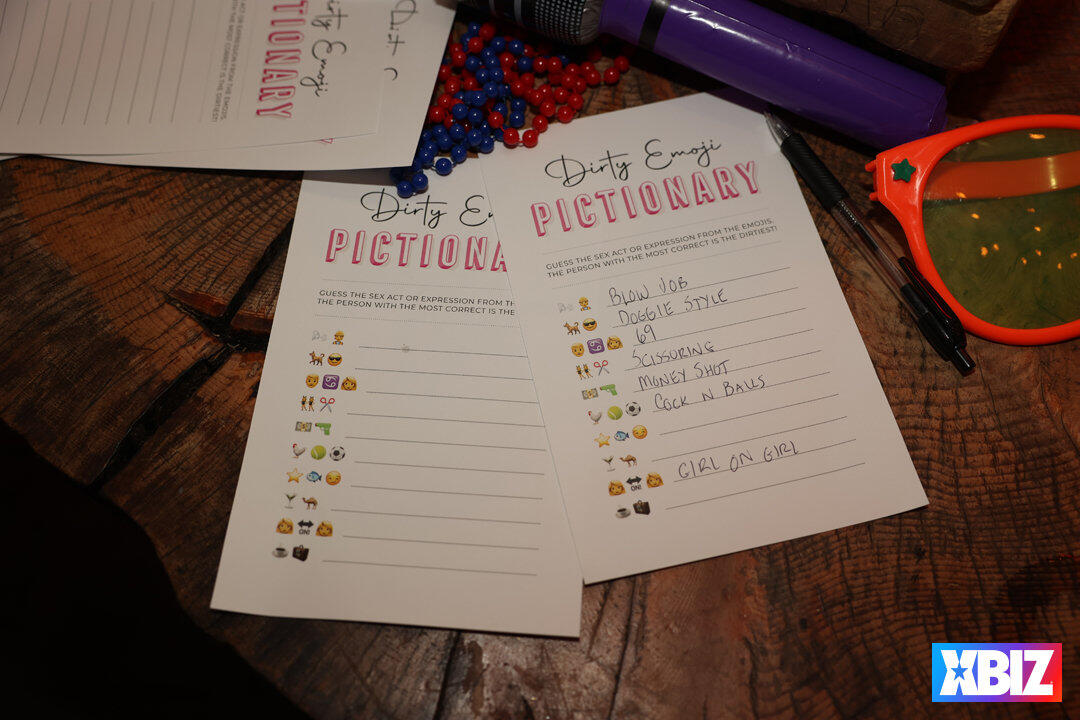 Dirty Emoji
PICTIONARY
GUESS THE SEX ACT OR EXPRESSION FROM THE EMOJIS.
THE PERSON WITH THE MOST CORRECT IS THE DIRTIEST!
BLOW JOB
DOGGIE STYLE
69
SCISSORING
MONEY SHOT
COCK N BALLS
GIRL ON GIRL
ON!
Dirty
PICTIONA
GUESS THE SEX ACT OR EXPRESSION FROM
THE PERSON WITH THE MOST CORRECT IS THE
ON!
Emoji
TIONARY
ACT OR EXPRESSION FROM THE EMOJIS.
THE MOST CORRECT IS THE DIRTIEST!
XBIZ